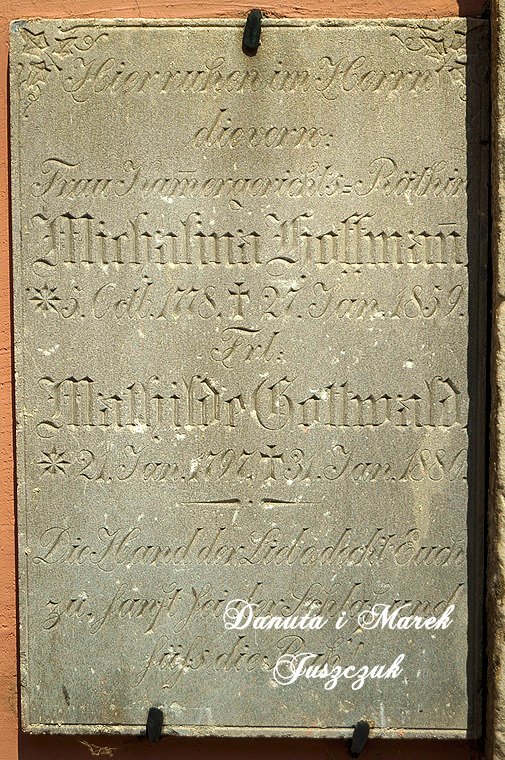 Hier ruhen im Herrn
die verw:
Frau Kam̄ergerichts=Räthin
Michalina Hoffman̄
* 5. Oct. 1778. † 27. Jan. 1859.
Frl.
Mathilde Gottwald
* 21. Jan. 1797. † 31. Jan. 1880.
Die Hand der Liebe deckt Euch
zu, sanft sei der Schlaf und
süss die Ruh!
Danuta i Marek
Juszczuk